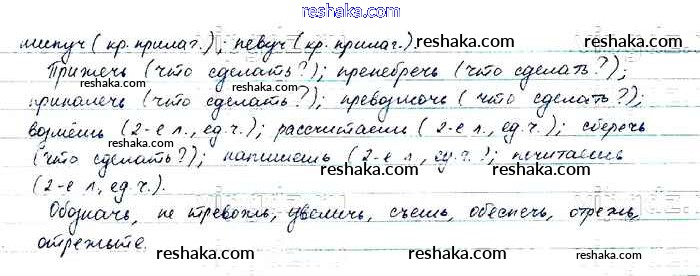 reshaka.com
липуч (кр. прилаг.); певуч (кр. прилаг.) reshaka.com
Прижечь (что сделать?); пренебречь (что сделать?);
приналечь (что сделать?); превозмочь (что сделать?);
возмёшь (2-е л., ед.ч.); рассчитаешь (2-е л., ед.ч.); сберечь
(что сделать?); напишешь (2-е л., ед.ч.); почитаешь
(2-е л, ед.ч.).
Обозначь, не тревожь, увеличь, съешь, обеспечь, отрежь,
отрежьте.
reshaka.com
reshaka.com
reshaka.com
reshaka.com
reshaka.com
reshaka.com
reshaka.com
reshaka.com